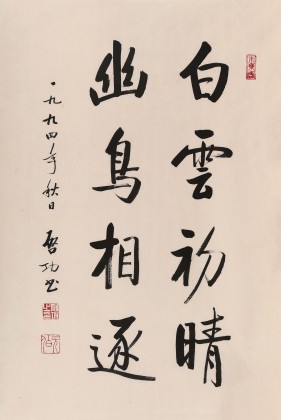 白雲初晴
幽鳥相逐
一九九四年秋日
啓功書